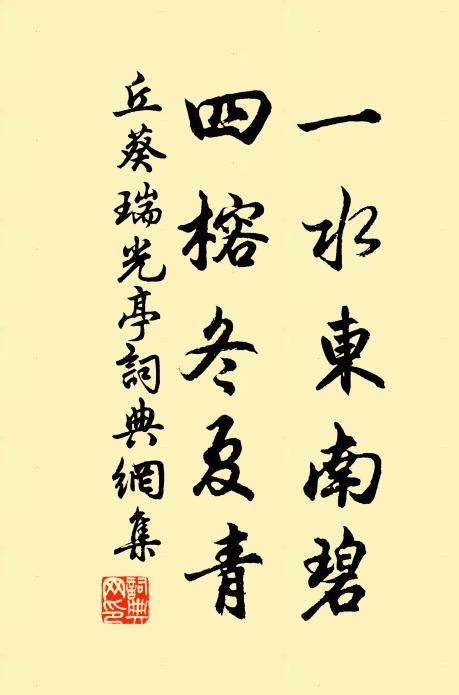 一水東南碧
四榕冬夏青
丘葵瑞光亭詞典網集
詞典
網印